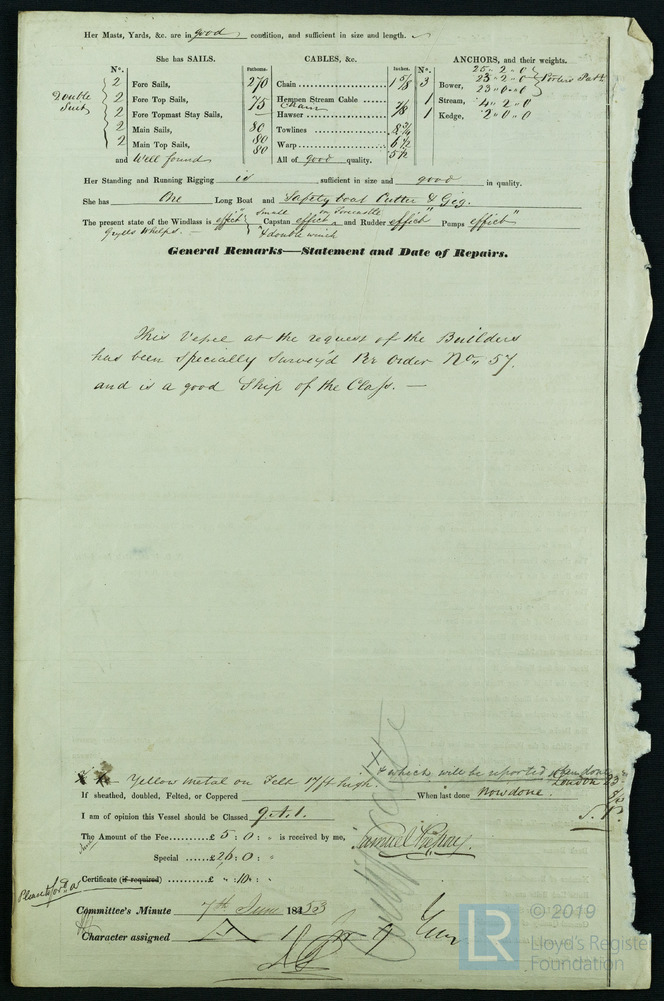 Her Masts, Yards, &c. are in good condition, and sufficient in size and length.
She has SAILS.
CABLES, &c.
ANCHORS, and their weights.
Nº.
Fathoms.
Inches.
Nº.
Double Suit
2 Fore Sails,
2 Fore Top Sails,
2 Fore Topmast Stay Sails,
2 Main Sails,
2 Main Top Sails,
and Well found
270 Chain 1 5/8
75 Hempen Stream Cable
Chain 7/8
Hawser
80 Towlines
80 Warp 6 1/2
80 5 1/2
All of good quality.
3 Bower, 25 " 2 " 0
23 " 2 " 0
23 " 0 " 0
1 Stream, 4 " 2 " 0
1 Kedge, 2 " 0 " 0
Her Standing and Running Rigging is sufficient in size and good in quality.
She has One Long Boat and Safety boat Cutter & Gig.
The present state of the Windlass is effict" Capstan effict and Rudder effict" Pumps effict"
Small on Forecastle
& double winch
General Remarks—Statement and Date of Repairs.
This Vessel at the request of the Builders
has been Specially Survey'd Per Order No. 57.
and is a good Ship of the Class. —
Yellow Metal on Felt 17 ft high. & which will be reported when done
London 23
If sheathed, doubled, Felted, or Coppered
When last done Now done
I am of opinion this Vessel should be Classed
The Amount of the Fee £ 5 : 0 : " is received by me,
Samuel
Special £ 26 : 0 : "
Certificate (if required) £ " : 10 : "
Certificate
Committee's Minute 7th June 1853
Character assigned A 1
LR
© 2019
Lloyd's Register
Foundation